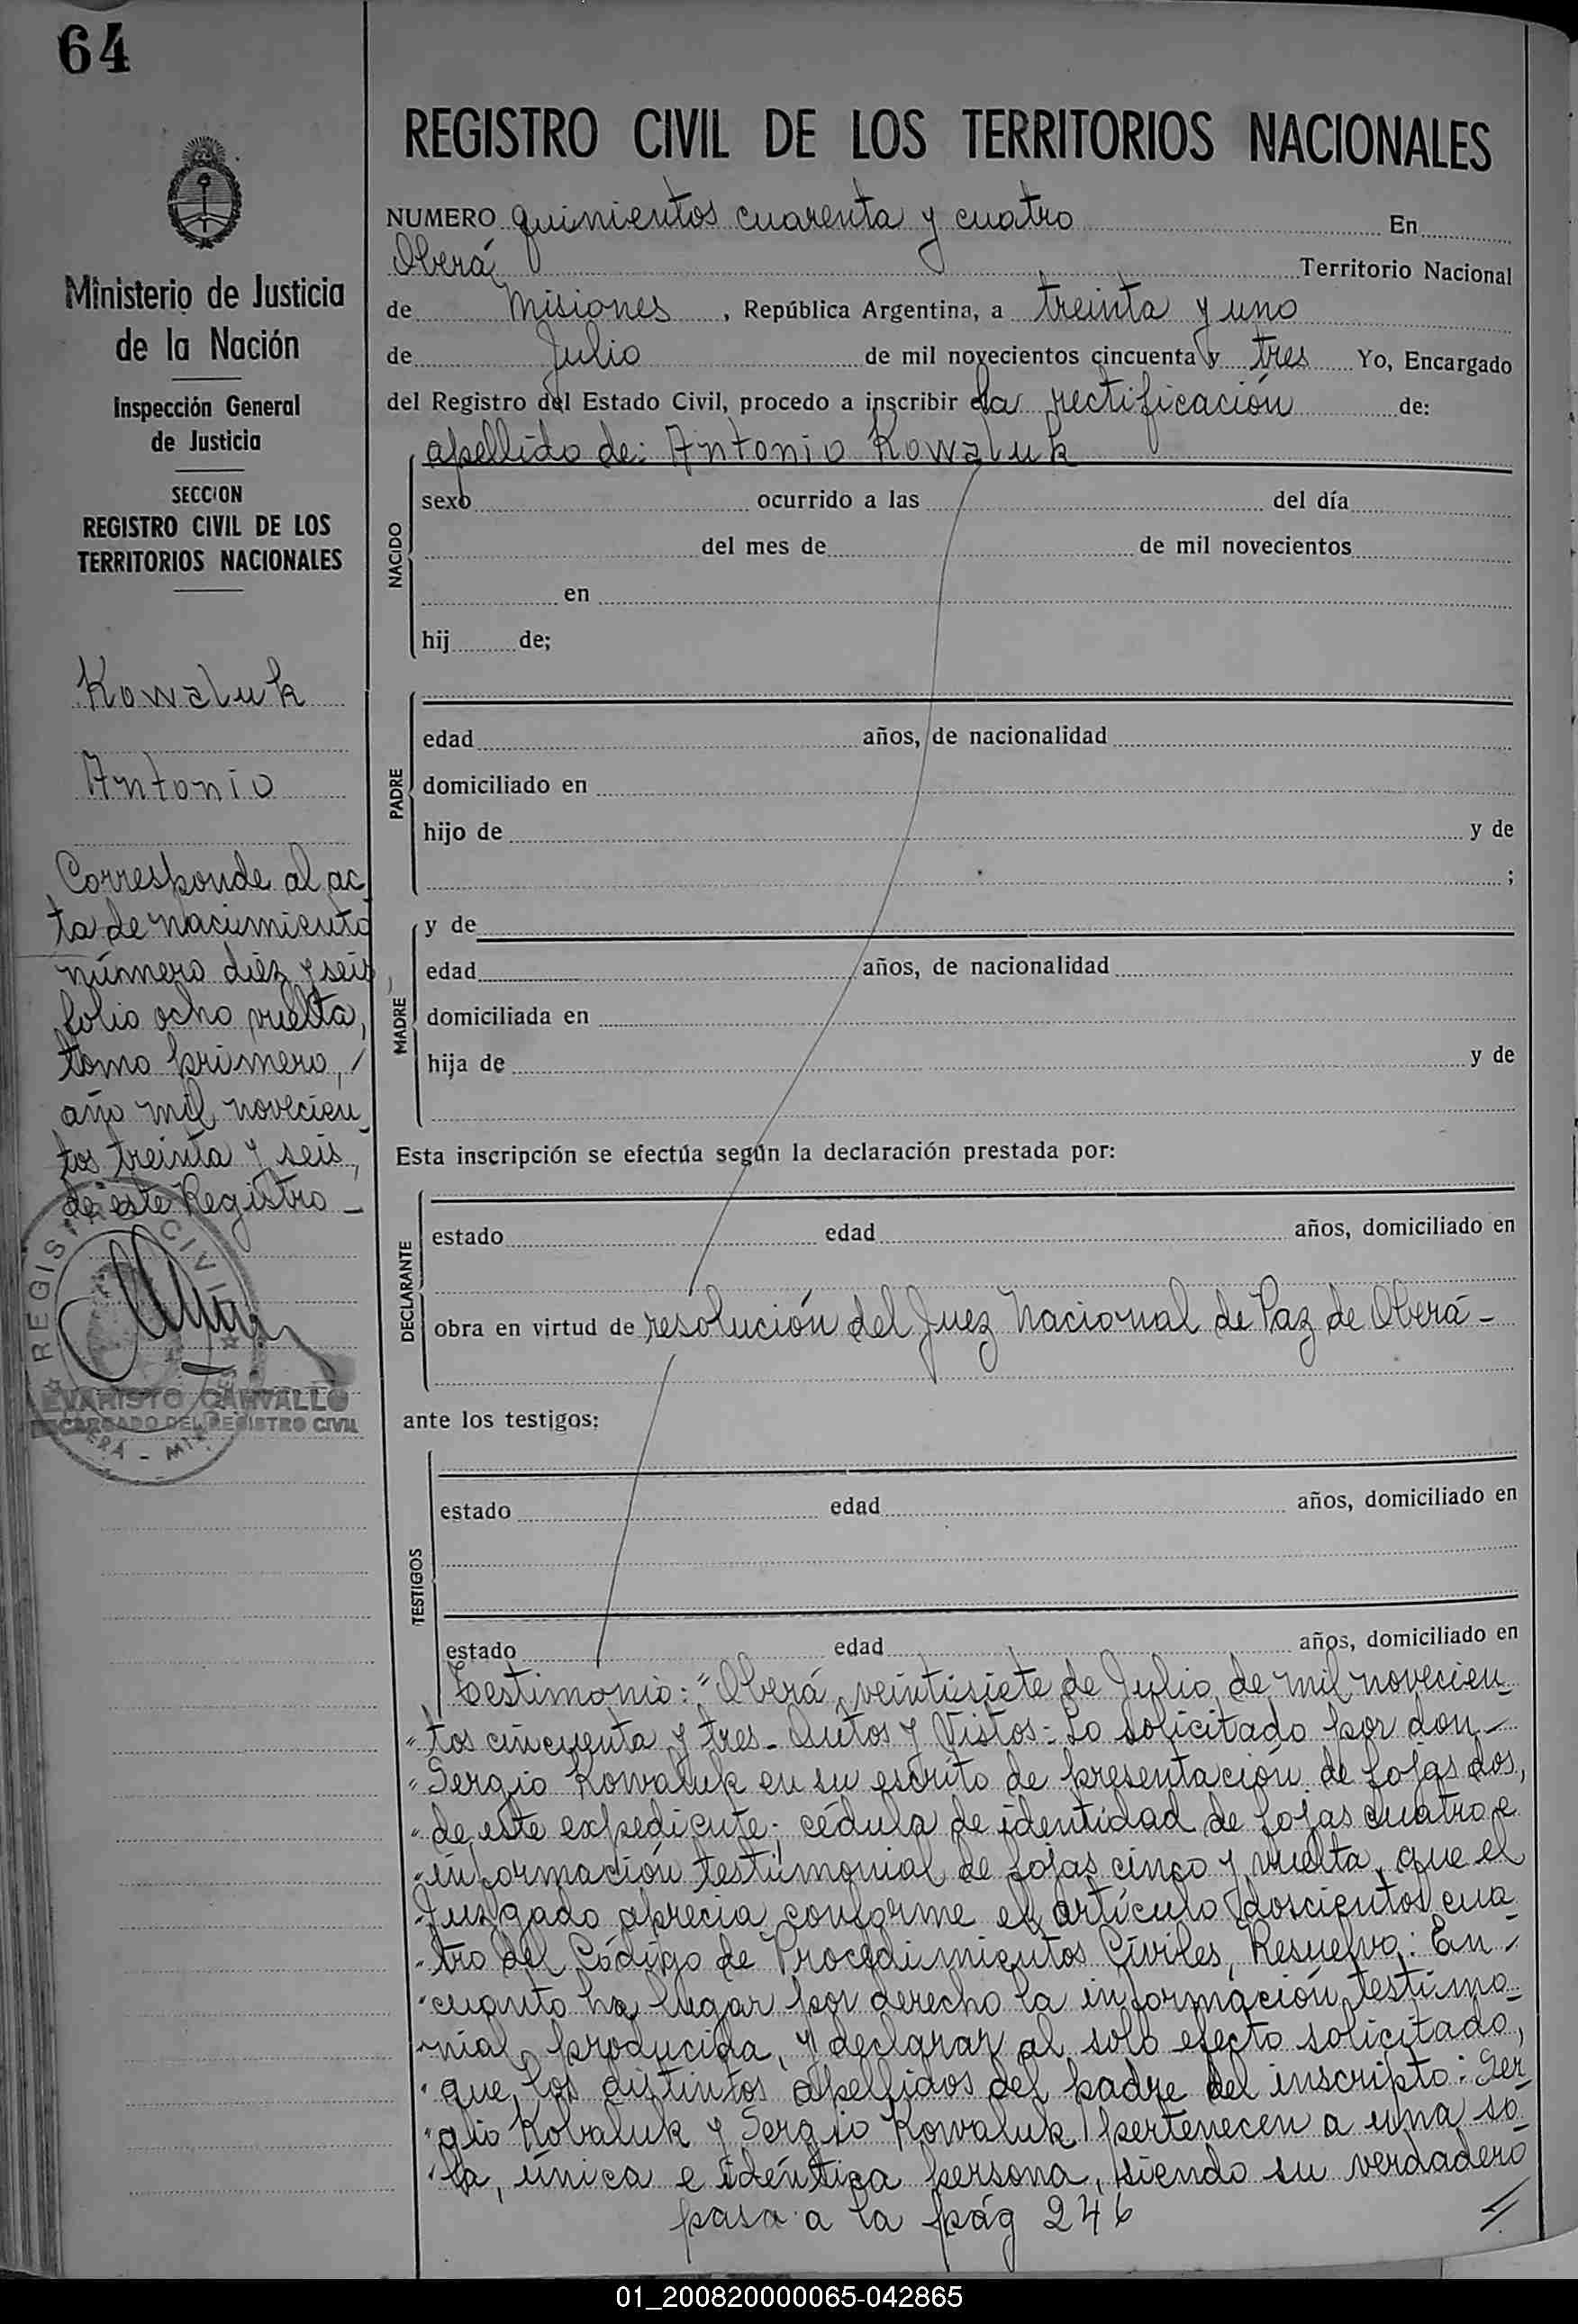 64
Ministerio de Justicia
de la Nación
Inspección General
de Justicia
SECCION
REGISTRO CIVIL DE LOS
TERRITORIOS NACIONALES
Kowaluk
Antonio
Corresponde al ac
ta de nacimiento
número diéz y seis
folio ocho vuelta,
tomo primero,
año mil novecien_
tos treinta y seis,
de este Registro _
REGISTRO CIVIL
EVARISTO CARVALLO
ENCARGADO DEL REGISTRO CIVIL
REGISTRO CIVIL DE LOS TERRITORIOS NACIONALES
NUMERO quinientos cuarenta y cuatro En
Oberá Territorio Nacional
de Misiones , República Argentina, a treinta y uno
de Julio de mil novecientos cincuenta y tres Yo, Encargado
del Registro del Estado Civil, procedo a inscribir el la rectificación de:
apellido de: Antonio Kowaluk
NACIDO
sexo ocurrido a las del día
del mes de de mil novecientos
en
hij de;
PADRE
edad años, de nacionalidad
domiciliado en
hijo de y de
;
MADRE
y de
edad años, de nacionalidad
domiciliada en
hija de y de
Esta inscripción se efectúa según la declaración prestada por:
DECLARANTE
estado edad años, domiciliado en
obra en virtud de resolución del Juez Nacional de Paz de Oberá -
ante los testigos:
TESTIGOS
estado edad años, domiciliado en
estado edad años, domiciliado en
Testimonio: "Oberá, veintisiete de Julio de mil novecien_
"tos cincuenta y tres - Autos y Vistos: Lo solicitado por don -
"Sergio Kowaluk en su escrito de presentación de fojas dos,
"de este expediente; cédula de identidad de fojas cuatro e
"información testimonial de fojas cinco y vuelta, que el
"Juzgado aprecia conforme el artículo doscientos cua_
"tro del Código de Procedimientos Civiles, Resuelvo: En -
"cuanto ha lugar por derecho la información testimo_
"nial producida, y declarar al solo efecto solicitado,
"que los distintos apellidos del padre del inscripto: Ser_
"gio Kovaluk y Sergio Kowaluk pertenecen a una so_
"la, única e idéntica persona, siendo su verdadero
pasa a la pág 246 //
01_200820000065-042865